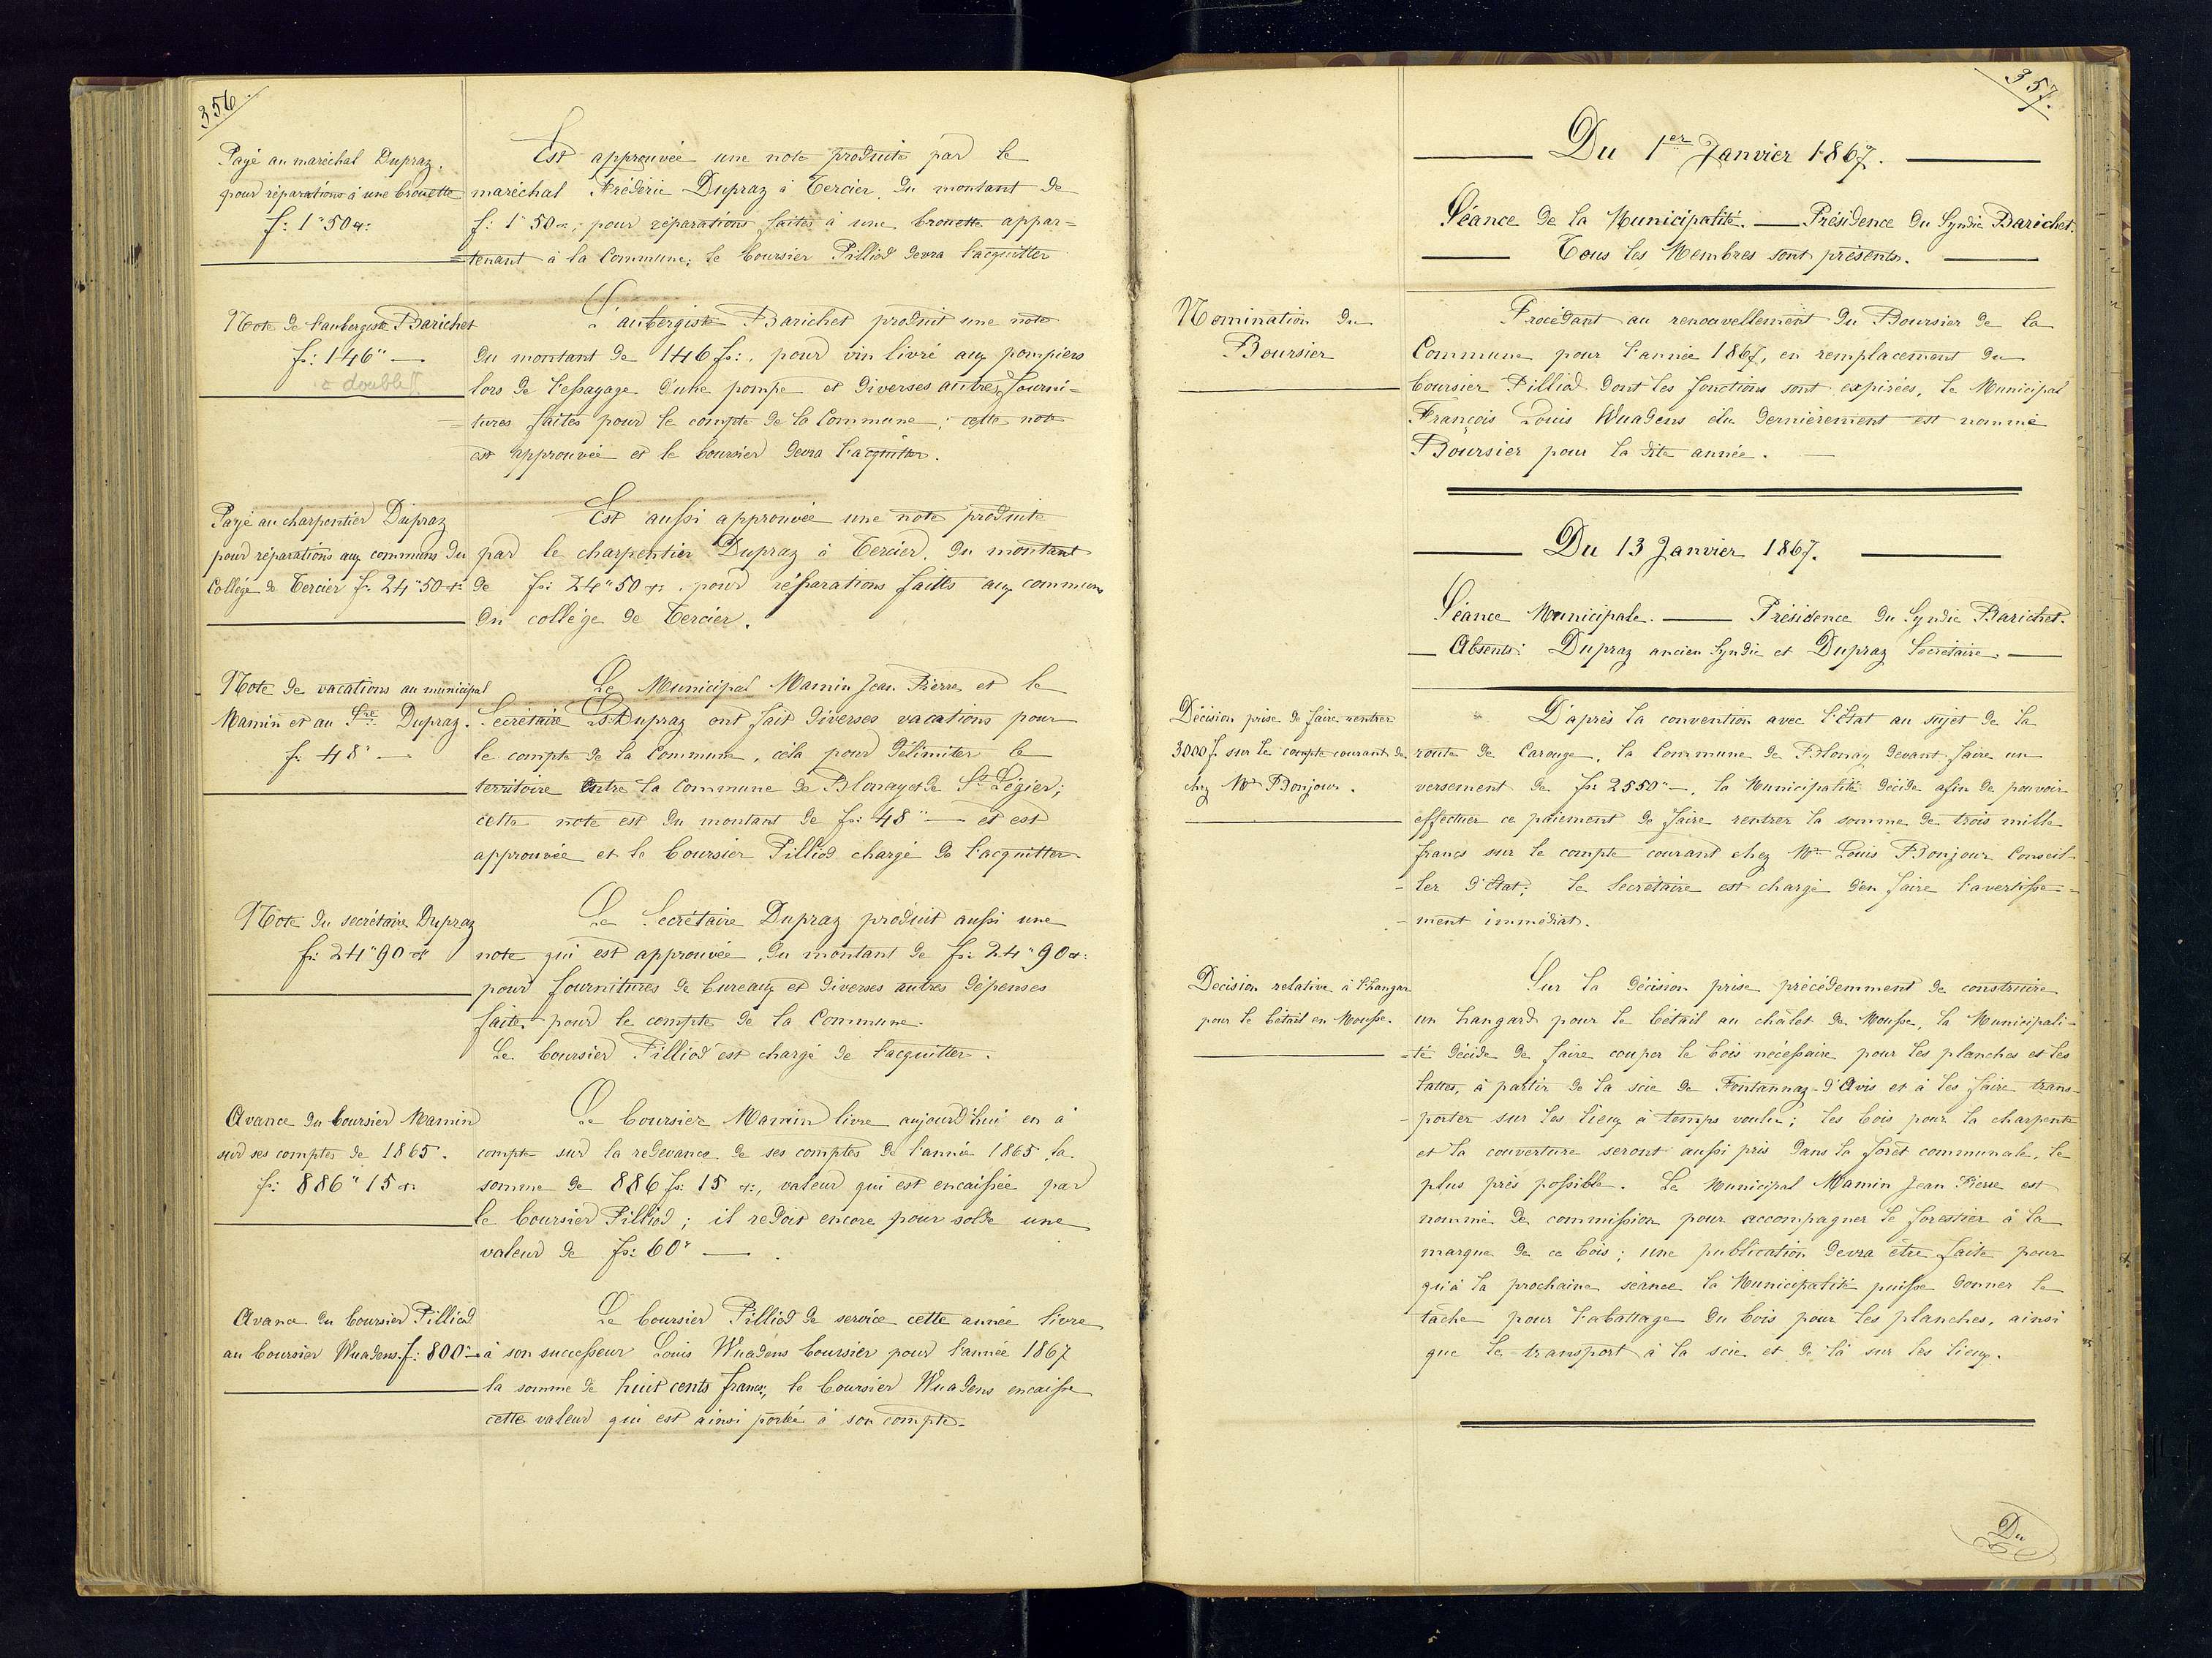 356
Payé au maréchal Dupraz.
pour réparations à une brouette
f: 1"50 ct:
Est approuvée une note produite par le
maréchal Frédéric Dupraz à Tercier du montant de
f: 1"50 ct: pour réparations faites à une brouette appar=
=tenant à la Commune; le boursier Pilliod devra l'acquitter
Note de l'aubergiste Barichet
fr: 146" —
à double
L'aubergiste Barichet produit une note
du montant de 146 fr:, pour vin livré aux pompiers
lors de l'essayage d'une pompe et diverses autres fourni=
=tures faites pour le compte de la Commune; cette note
est approuvée et le boursier devra l'acquitter.
Payé au charpentier Dupraz
pour réparations aux communs du
Collège de Tercier fr: 24"50 ct:
Est aussi approuvée une note produite
par le charpentier Dupraz à Tercier, du montant
de fr: 24"50 ct: pour réparations faites aux communs
du collége de Tercier.
Note de vacations au municipal
Mamin et au Sre Dupraz.
fr: 48" —
Le Municipal Mamin Jean Pierre et le
Secrétaire Dupraz ont fait diverses vacations pour
le compte de la Commune, cela pour délimiter le
territoire entre la Commune de Blonay et de St Légier;
cette note est du montant de fr: 48" — et est
approuvée et le boursier Pilliod chargé de l'acquitter.
Note du secrétaire Dupraz
fr: 24"90 ct
Le Secrétaire Dupraz produit aussi une
note qui est approuvée, du montant de fr: 24"90 ct:
pour fournitures de bureaux et diverses autres dépenses
faites pour le compte de la Commune.
Le boursier Pilliod est chargé de l'acquitter.
Avance du boursier Mamin
sur ses comptes de 1865.
fr: 886"15 ct:
Le boursier Mamin livre aujourd'hui en à
compte sur la redevance de ses comptes de l'année 1865 la
somme de 886 fr: 15 ct:, valeur qui est encaissée par
le boursier Pilliod; il redoit encore pour solde une
valeur de fr: 60" — .
Avance du boursier Pilliod
au boursier Wuadens. f: 800" —
Le boursier Pilliod de service cette année livre
à son successeur Louis Wuadens boursier pour l'année 1867
la somme de huit cents francs, le boursier Wuadens encaisse
cette valeur qui est ainsi portée à son compte.
357.
Du 1er Janvier 1867.
Séance de la Municipalité. — Présidence du Syndic Barichet.
Tous les Membres sont présents.
Nomination du
Boursier
Procédant au renouvellement du Boursier de la
Commune pour l'année 1867, en remplacement du
boursier Pilliod dont les fonctions sont expirées, le Municipal
François Louis Wuadens élu dernièrement est nommé
Boursier pour la dite année. —
Du 13 Janvier 1867.
Séance Municipale. — Présidence du Syndic Barichet.
— Absents: Dupraz ancien Syndic et Dupraz Secrétaire. —
Décision prise de faire rentrer
3000 f. sur le compte courant de
chez Mr Bonjour.
D'après la convention avec l'Etat au sujet de la
route de Carouge, la Commune de Blonay devant faire un
versement de fr: 2550" —, la Municipalité décide afin de pouvoir
effectuer ce paiement de faire rentrer la somme de trois mille
francs sur le compte courant chez Mr Louis Bonjour Conseil-
-ler d'Etat; le Secrétaire est chargé d'en faire l'avertisse=
-ment immédiat.
Décision relative à l'hangar
pour le bétail en Mousse.
Sur la décision prise précédemment de construire
un hangard pour le bétail au châlet de Mousse, la Municipali-
=té décide de faire couper le bois nécessaire pour les planches et les
lattes, à partir de la scie de Fontannaz-d'Avis et à les faire trans-
-porter sur les lieux à temps voulu; les bois pour la charpente
et la couverture seront aussi pris dans la forêt communale, le
plus près possible. Le Municipal Mamin Jean Pierre est
nommé de commission pour accompagner le forestier à la
marque de ce bois; une publication devra être faite pour
qu'à la prochaine séance la Municipalité puisse donner le
tâche pour l'abattage du bois pour les planches, ainsi
que le transport à la scie et de là sur les lieux.
Du